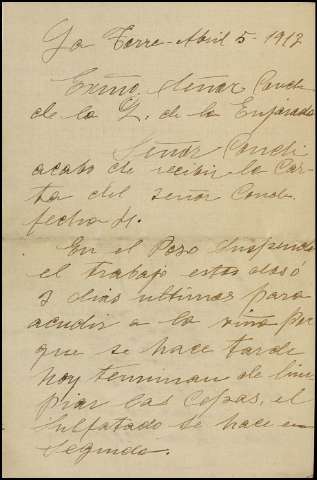 La Torre - Abril 5 - 1912
Exmo. Señor Conde
de la V. de la Enjarada
Señor Conde:
acabo de recibir la Car-
ta del Señor Conde
fecha 4.
En el Pozo Suspendo
el trabajo estos dos ó
3 dias ultimos para
acudir a la viña por
que se hace tarde
hoy terminan de lim-
piar las Cepas, el
sulfatado se hace en
seguida.